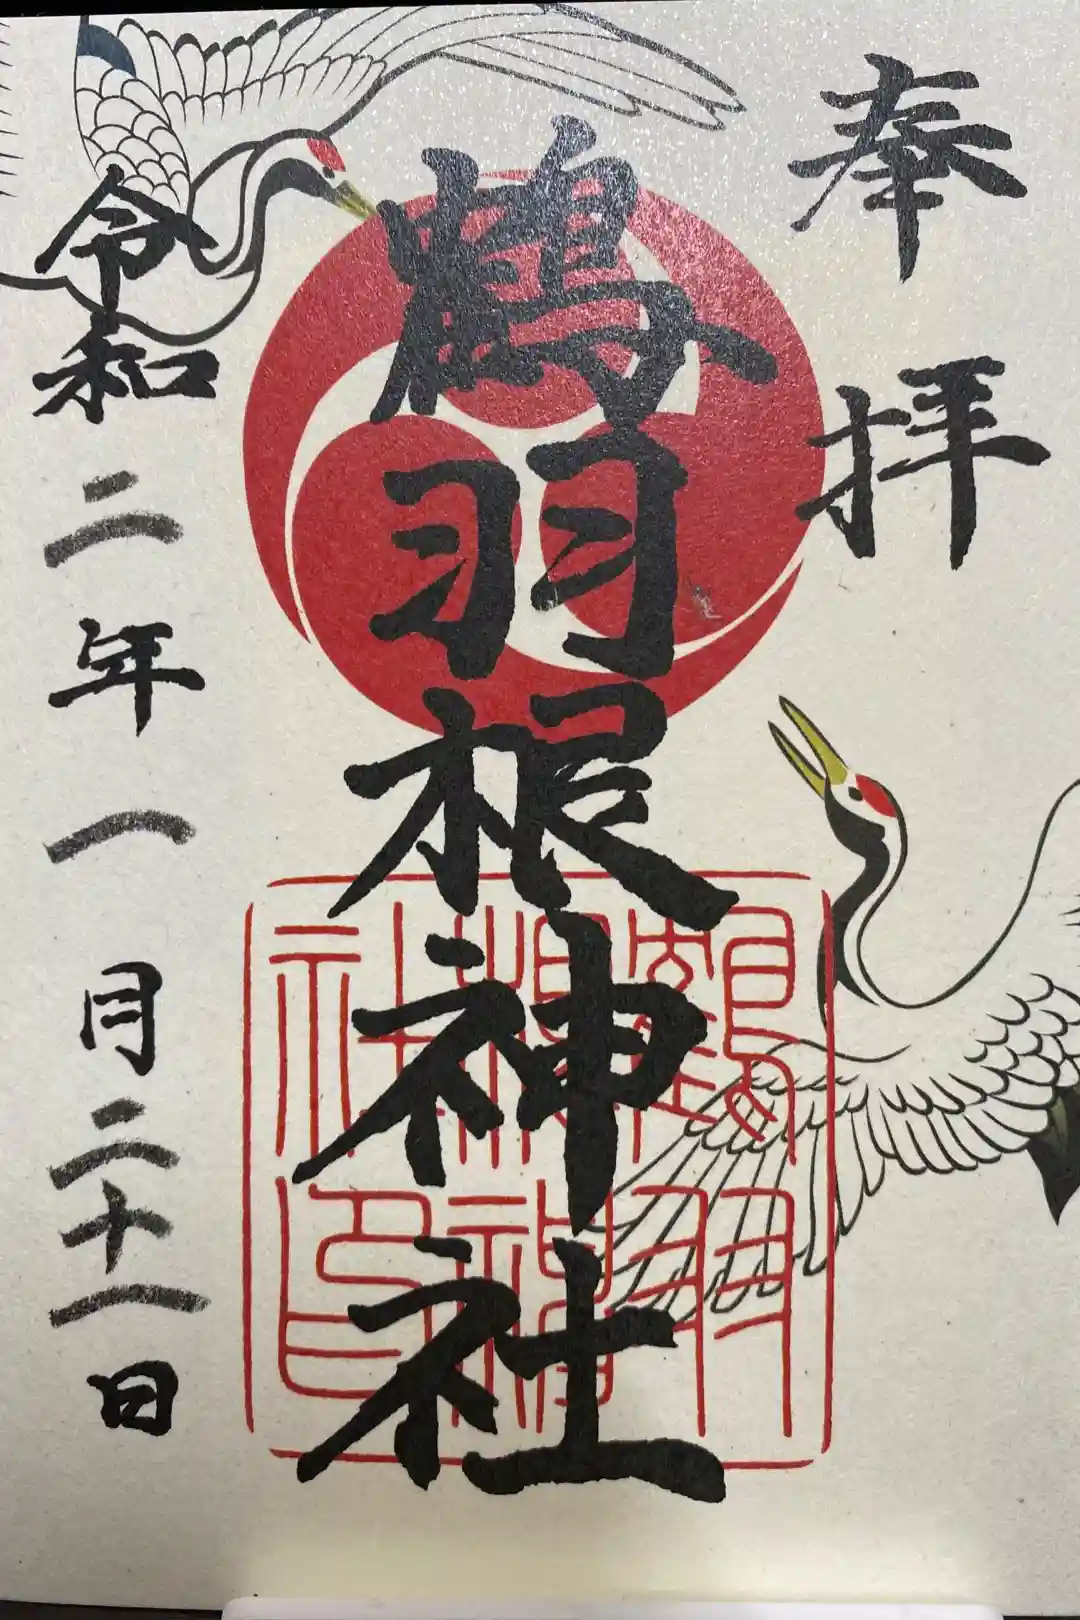 奉拝
鶴羽根神社
鶴羽根神社印
令和二年一月二十一日